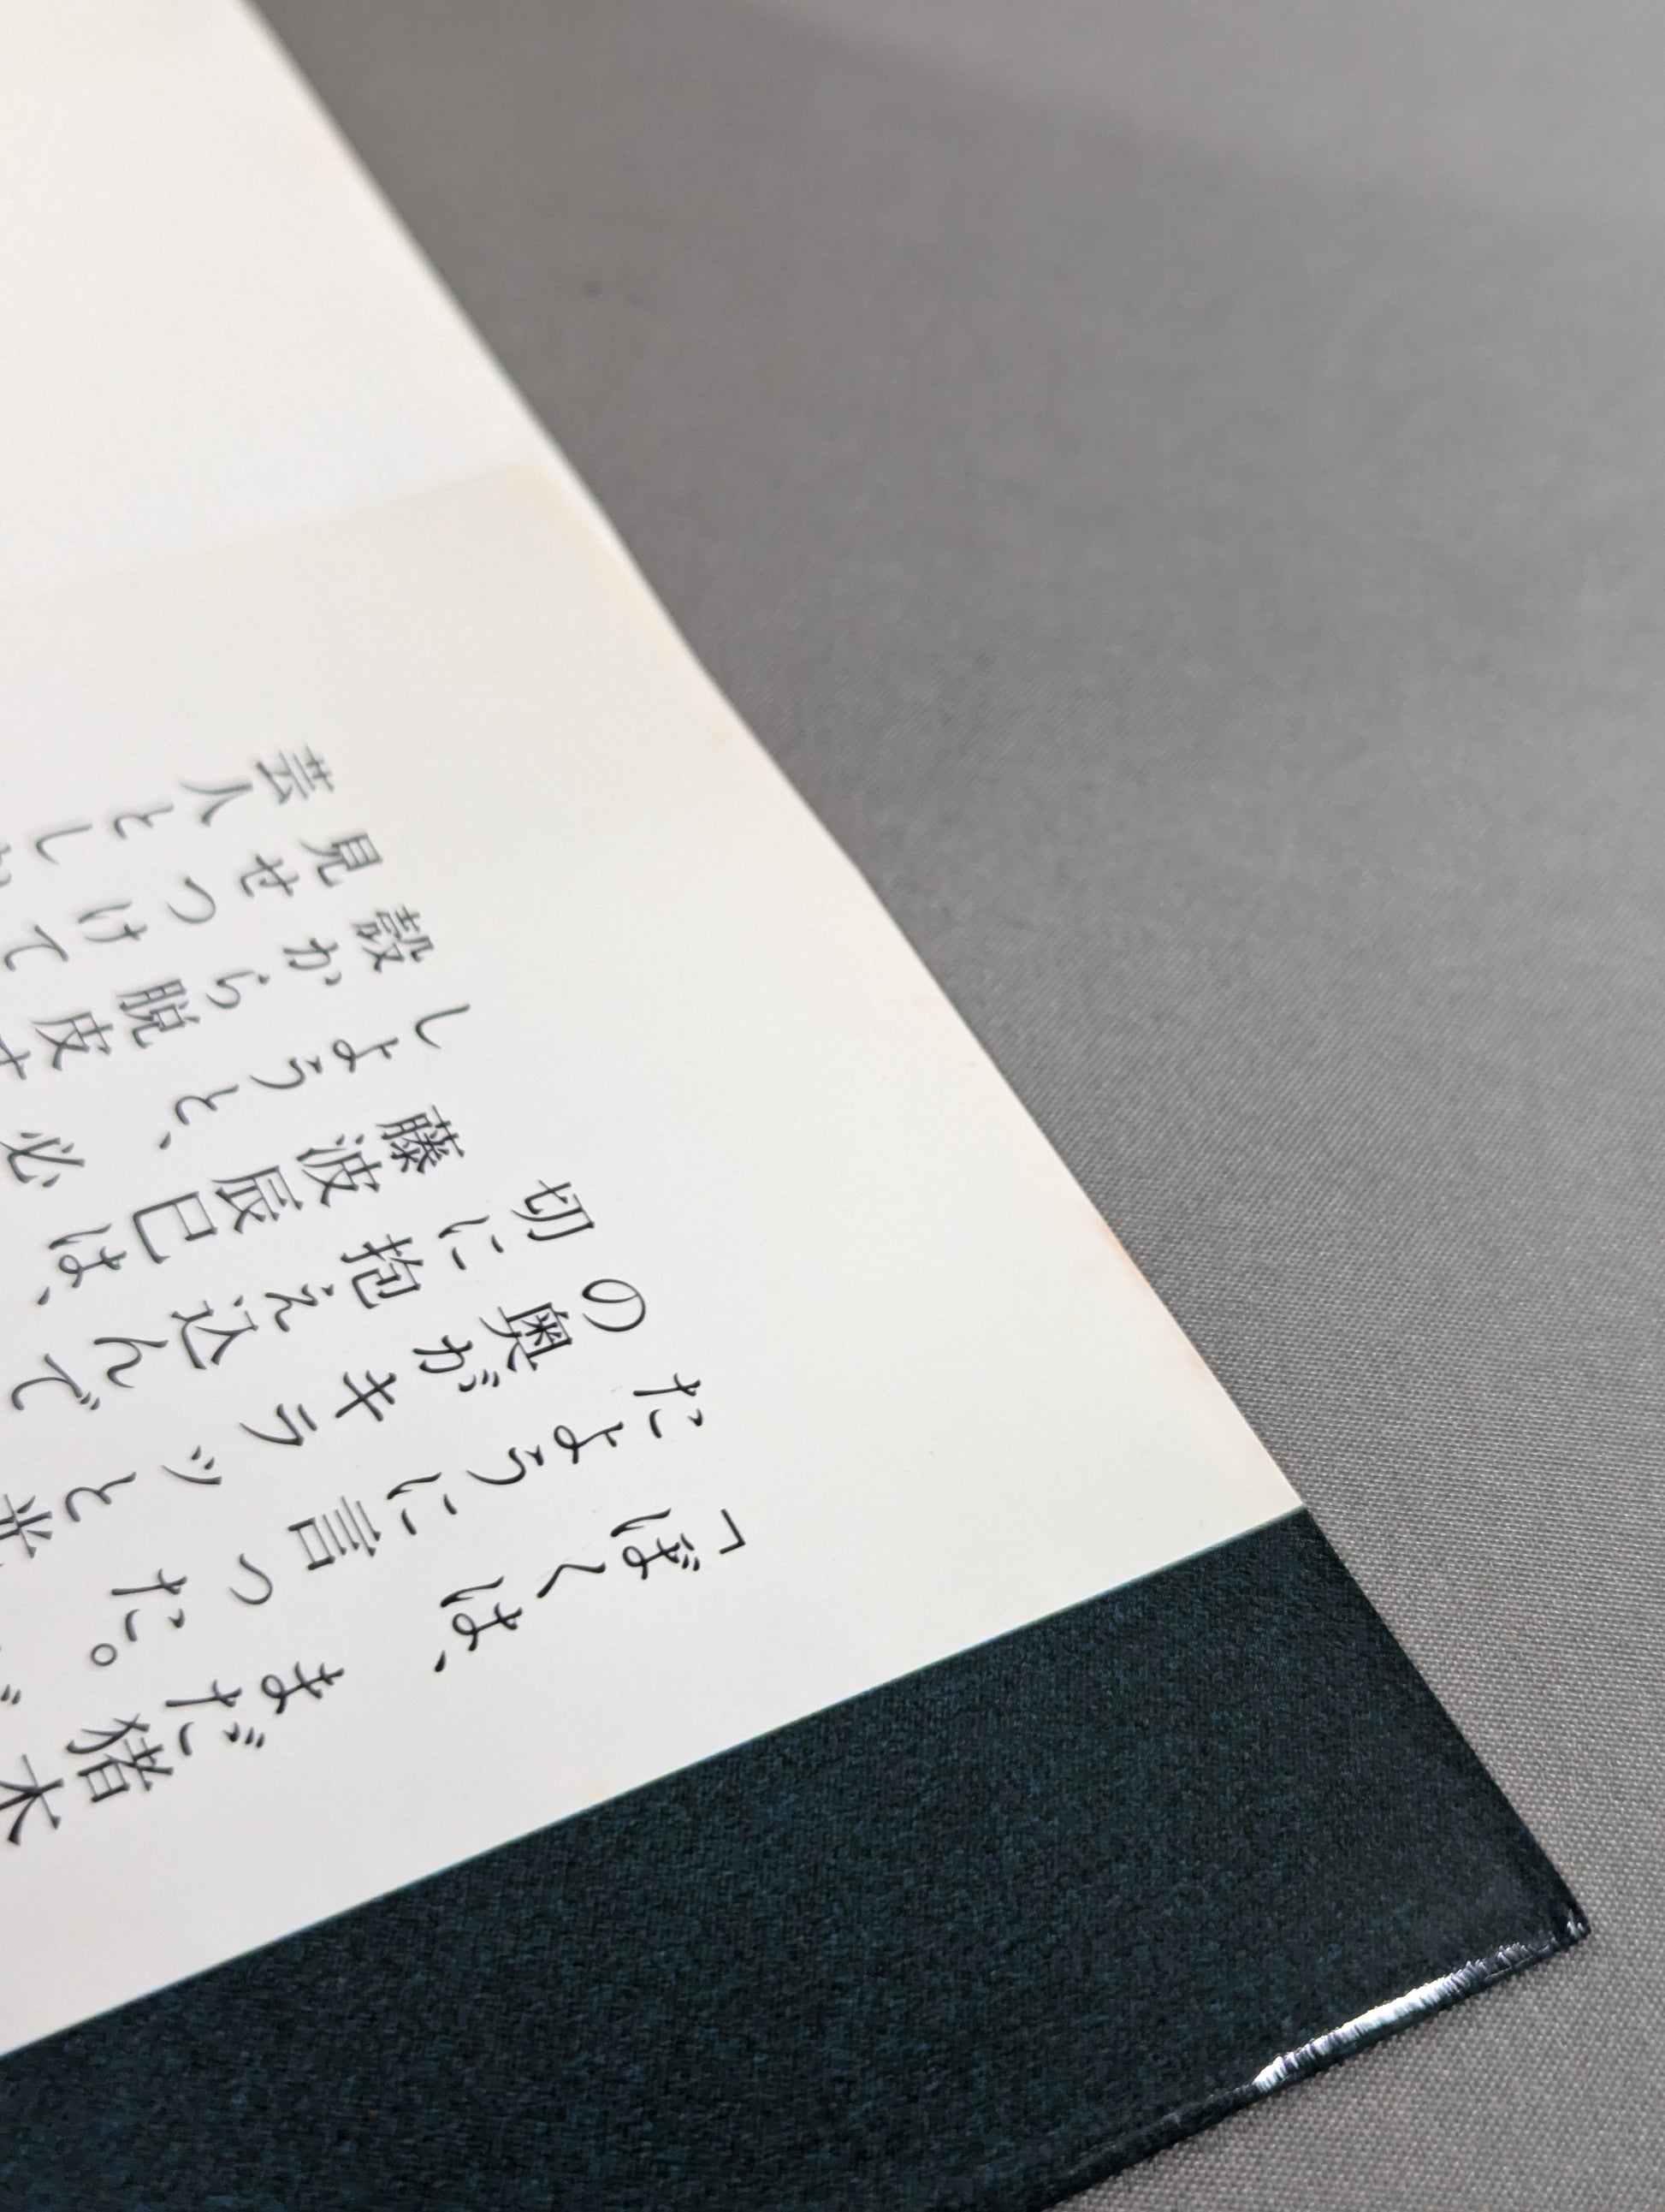 「ぼくは、まだ猪木
たように言った。
の奥がキラッと光
切に抱え込んで
藤波辰巳は、
しようと、必
殻から脱皮す
見せつけて
芸人とし